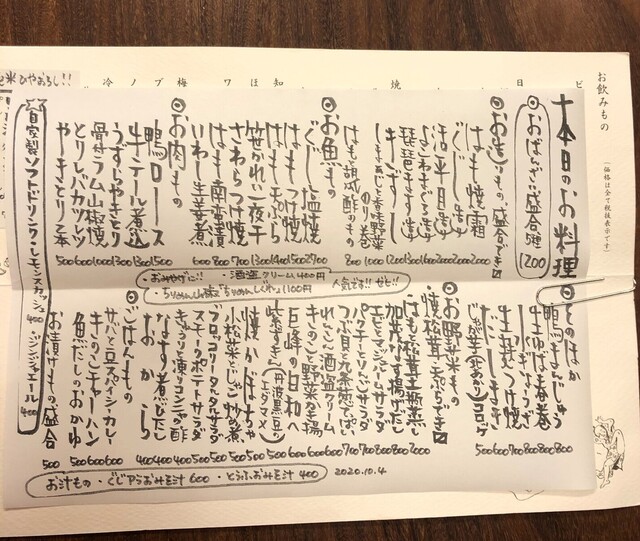 お飲みもの
(価格は全て税抜表示です)
本日のお料理
おばんざい盛合5種 1200
お造りもの 盛合できます
はも焼霜 2000
ぐじ造り 2000
よこわまぐろ造り 2000
活平目造り 1600
琵琶ます造り 1200
きずし 1300
しまあじと香味野菜のり巻 1000
はもと胡瓜酢のもの 800
お魚もの
ぐじ塩焼 2700
はもつけ焼 1500
はも天ぷら 1400
笹かれい一夜干 1300
さわらつけ焼 700
はも南蛮漬 800
いわし生姜煮 600
お肉もの
鴨ロース 1500
牛テール煮込 1300
うずらやきとり 1300
骨付ラム山椒焼 1000
とりレバカツレツ 600
やきとり2本 500
自家製ソフトドリンク・レモンスカッシュ 400 ・ジンジャエール 400
おみやげに!! ・酒盗クリーム 400円
・ちりめん山椒「ちりめんじくわ」1100円 人気です!!ぜひ!!
そのほか
鴨まんじゅう 800
生ゆば春巻 800
生麩つけ焼 800
だしまき 600
コロッケ 500
お野菜もの
焼松茸・天ぷらできます
はもと松茸土瓶蒸し 2000
加茂なす揚げだし 800
エビとマッシュルームサラダ 800
パクチーとソーセージサラダ 800
つぶ貝と九条葱てっぱい 700
れんこん酒盗クリーム 700
きのこと野菜の煮揚 600
巨峰の白和へ 600
焼かぼちゃ 500
小松菜とじゃこ炒め煮 500
ブロッコリータルタルサラダ 500
スモークポテトサラダ 500
きゅうりと凍りコンニャク酢 400
なす煮びたし 400
おから 400
ごはんもの
サバと豆スパイシーカレー 600
きのこチャーハン 600
魚だしのおかゆ 500
お漬けもの盛合 500
お汁もの ・ぐじアラおみそ汁 600 ・とうふおみそ汁 400
2020.10.4